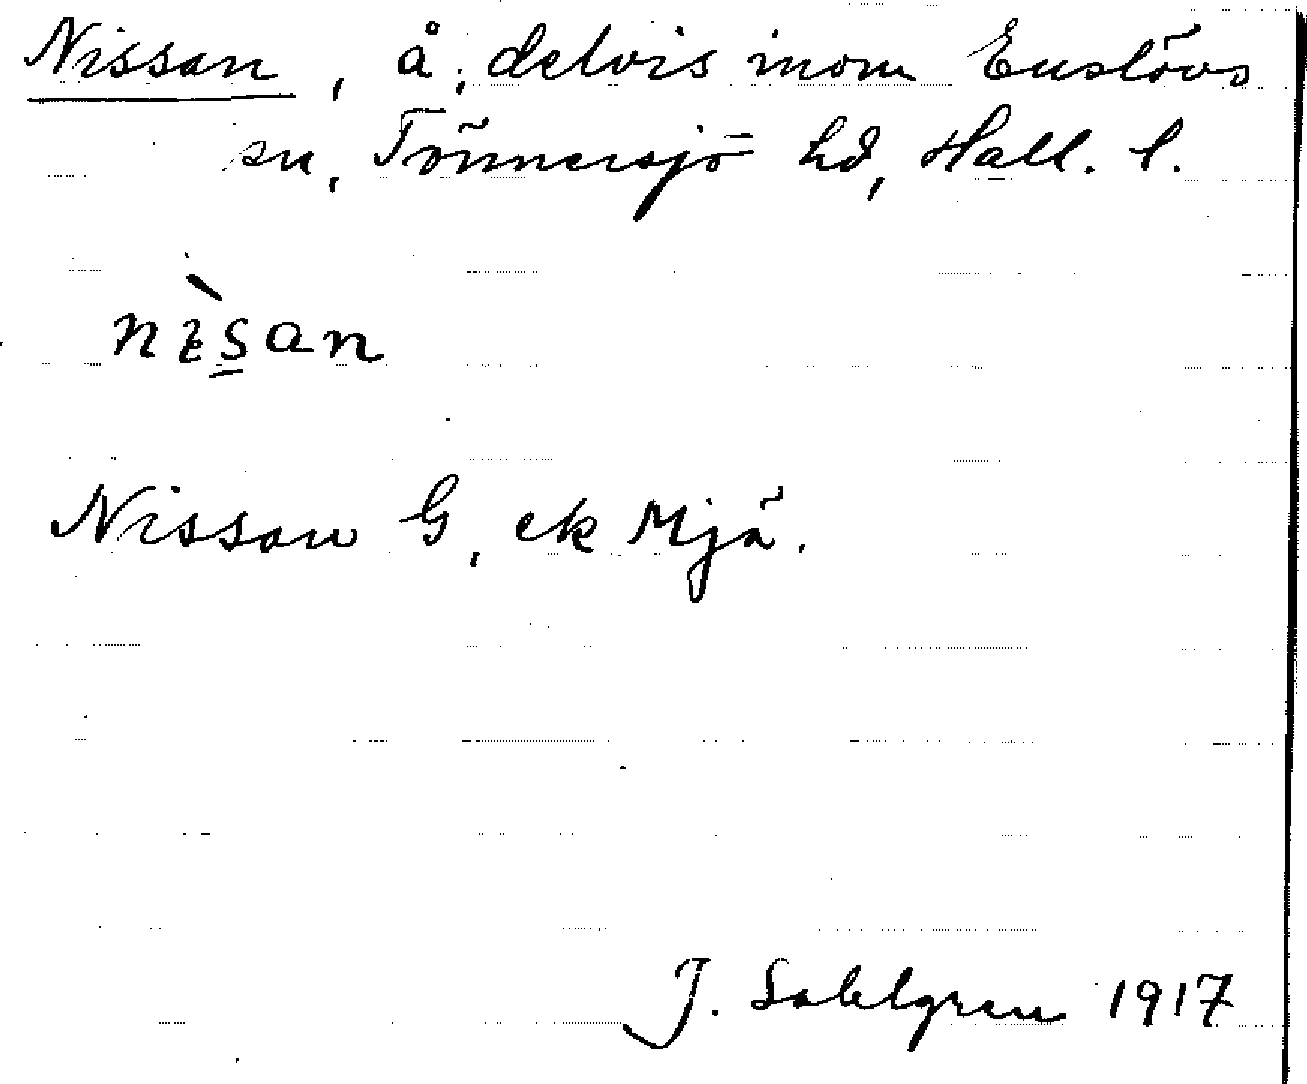 Nissan, å, delvis inom Enslövs
sn, Tönnersjö hd, Hall. l.
nìsan
Nissan G, ek Mjä.
J. Sahlgren 1917